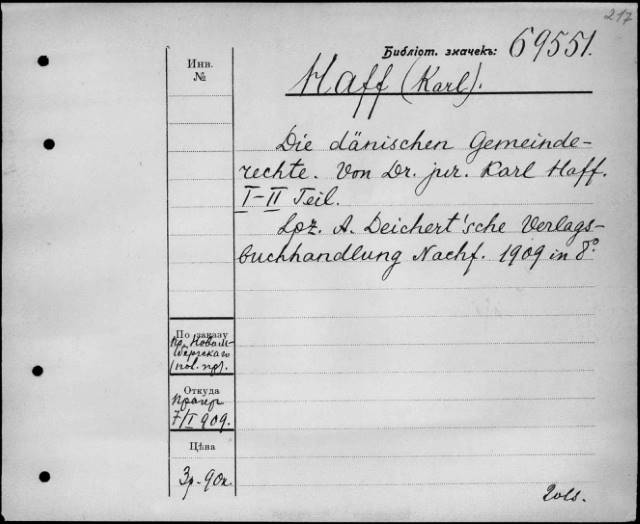 217
Библіот. значекъ: 69551.
Инв.
№
Haff (Karl).
Die dänischen Gemeinde-
rechte. Von Dr. jur. Karl Haff.
I–II Teil.
Lpz. A. Deichert'sche Verlags-
buchhandlung Nachf. 1909 in 8°.
По заказу
Откуда
7/I 909.
Цѣна
3р. 90к.
2 vls.